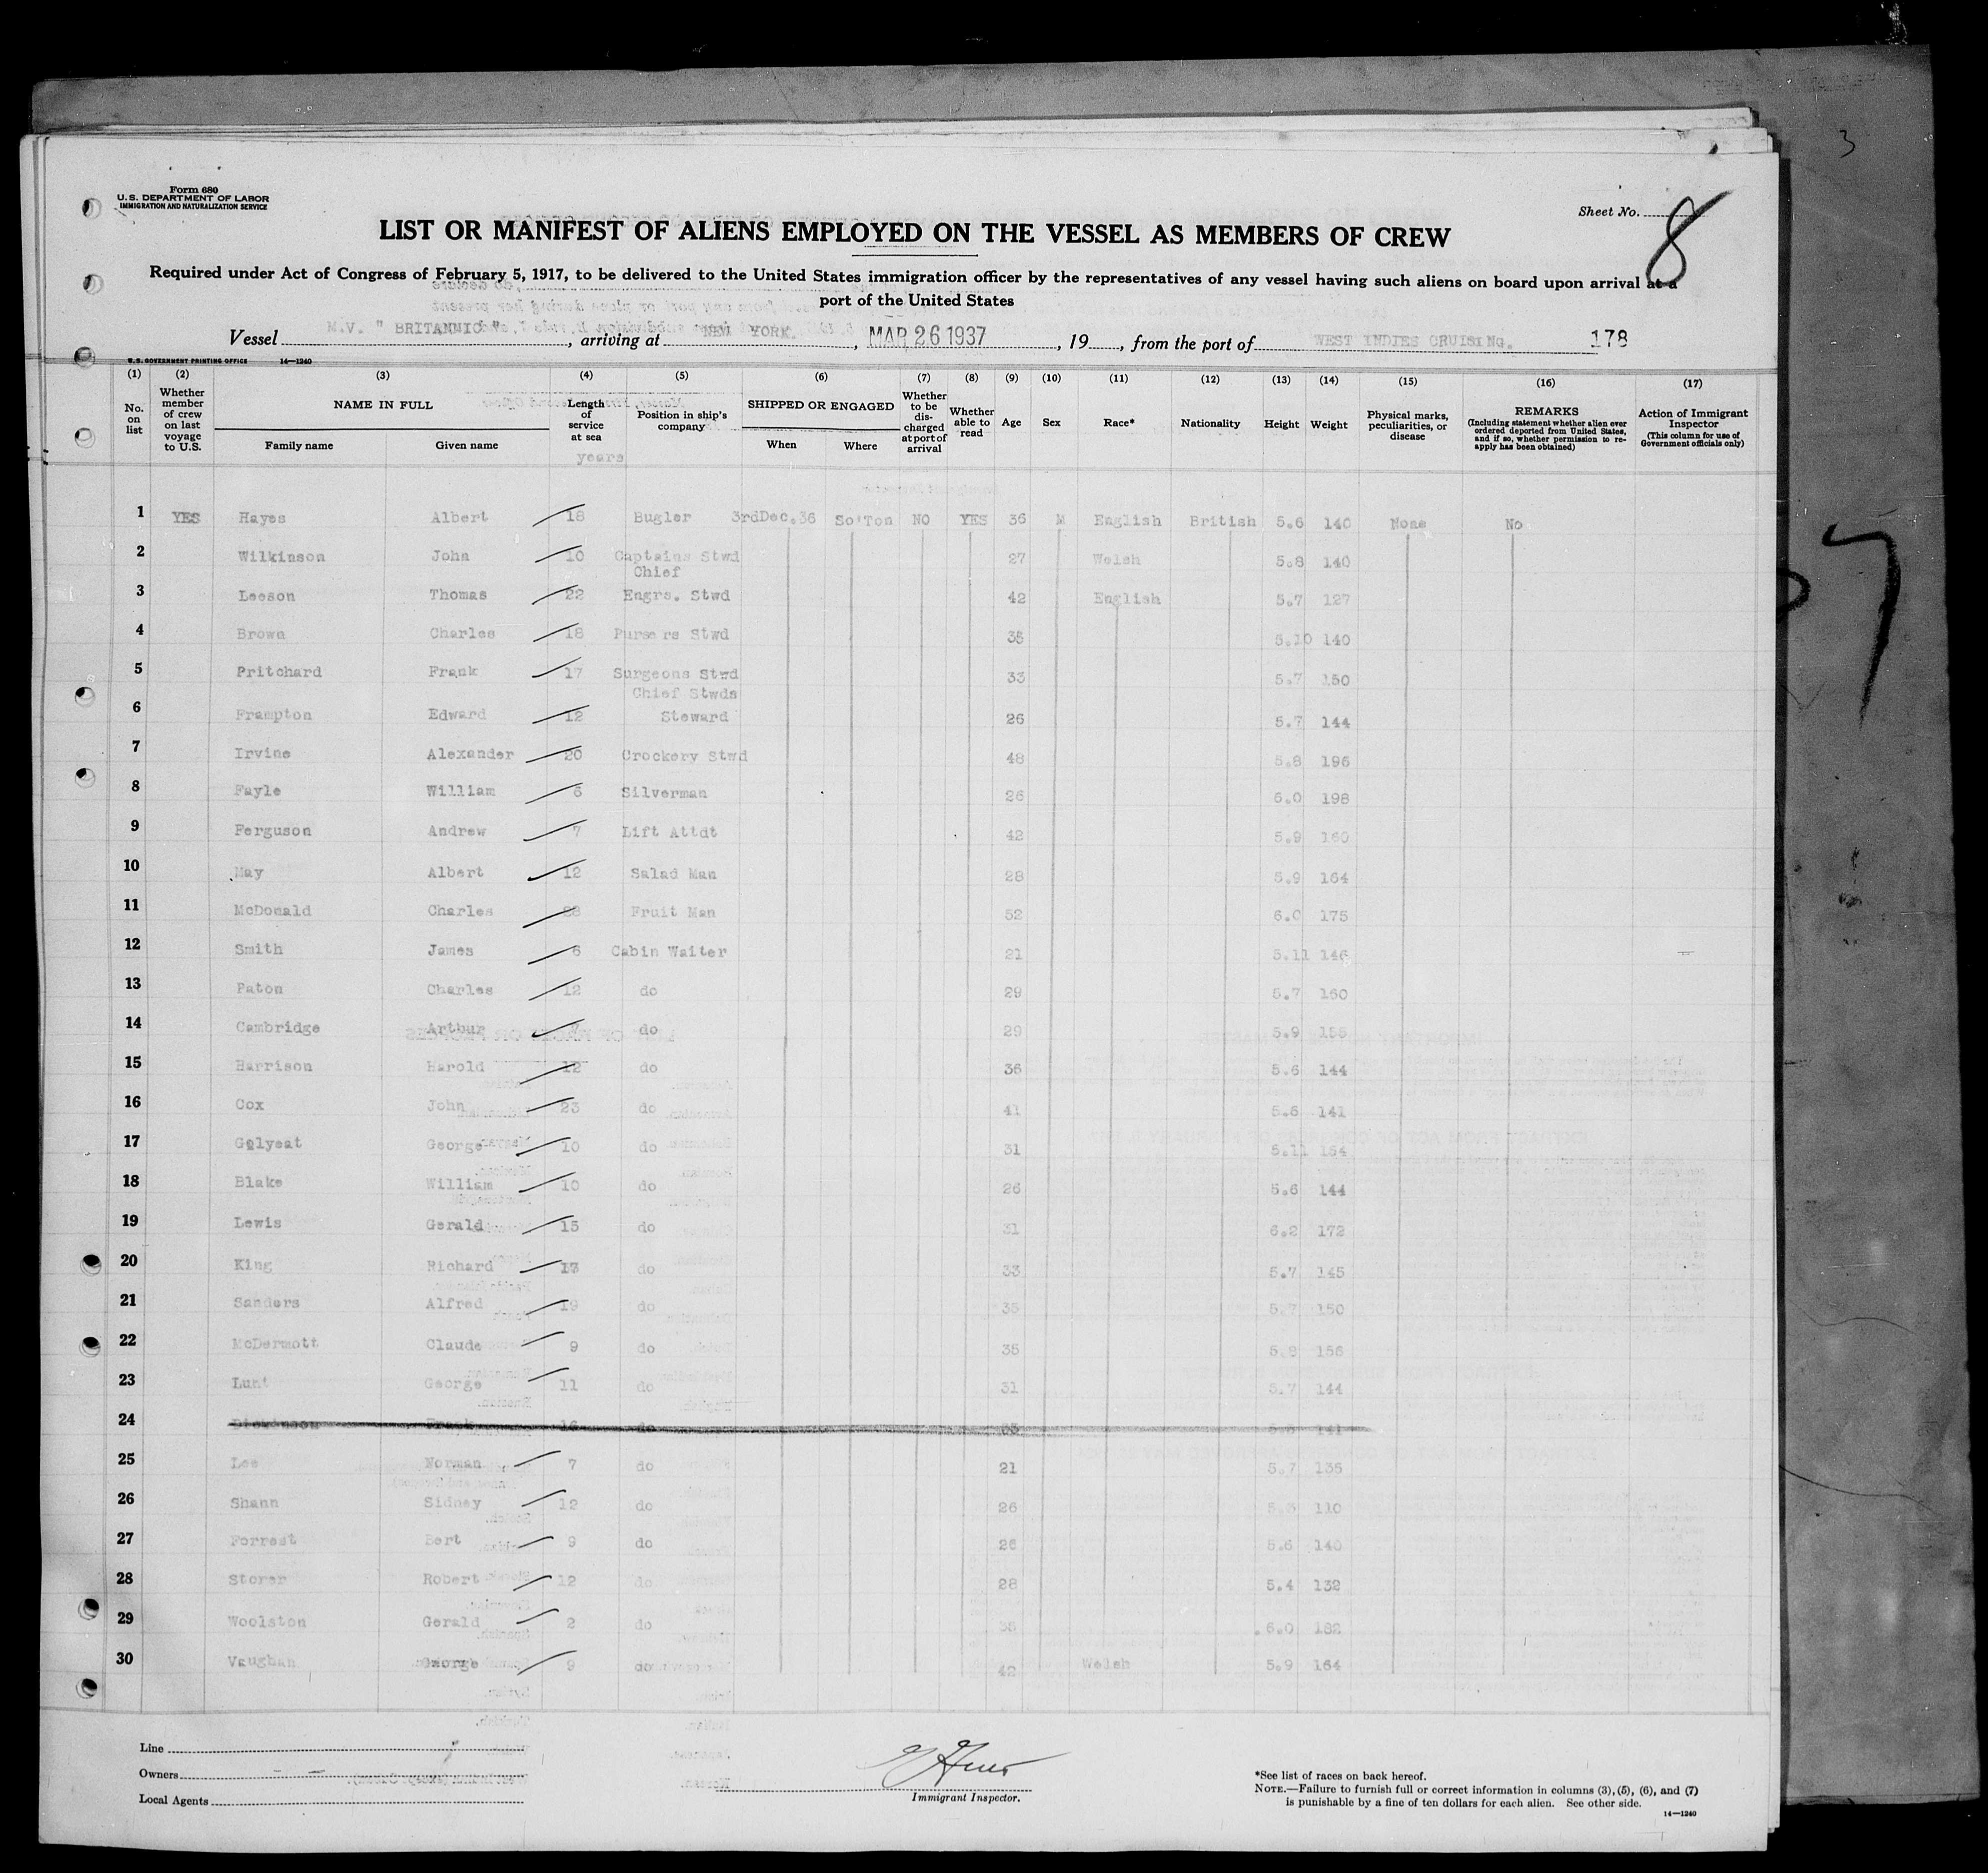 Form 680
U. S. DEPARTMENT OF LABOR
IMMIGRATION AND NATURALIZATION SERVICE
Sheet No. 8
LIST OR MANIFEST OF ALIENS EMPLOYED ON THE VESSEL AS MEMBERS OF CREW
Required under Act of Congress of February 5, 1917, to be delivered to the United States immigration officer by the representatives of any vessel having such aliens on board upon arrival at a
port of the United States
Vessel M.V. " BRITANNIC ", arriving at NEW YORK., MAR 26 1937, 19, from the port of WEST INDIES CRUISING. 178
U. S. GOVERNMENT PRINTING OFFICE 14—1240
(1) (2) (3) (4) (5) (6) (7) (8) (9) (10) (11) (12) (13) (14) (15) (16) (17)
No. on list
Whether member of crew on last voyage to U.S.
NAME IN FULL
Family name Given name
Length of service at sea
years
Position in ship's company
SHIPPED OR ENGAGED
When Where
Whether to be discharged at port of arrival
Whether able to read
Age Sex Race* Nationality Height Weight
Physical marks, peculiarities, or disease
REMARKS
(Including statement whether alien ever ordered deported from United States, and if so, whether permission to re-apply has been obtained)
Action of Immigrant Inspector
(This column for use of Government officials only)
1 YES Hayes Albert 18 Bugler 3rdDec.36 So'Ton NO YES 36 M English British 5.6 140 None No
2 Wilkinson John 10 Captains Stwd 27 Welsh 5.8 140
3 Leeson Thomas 22 Chief Engrs. Stwd 42 English 5.7 127
4 Brown Charles 18 Pursers Stwd 35 5.10 140
5 Pritchard Frank 17 Surgeons Stwd 33 5.7 150
6 Frampton Edward 12 Chief Stwds Steward 26 5.7 144
7 Irvine Alexander 20 Crockery Stwd 48 5.8 196
8 Fayle William 6 Silverman 26 6.0 198
9 Ferguson Andrew 7 Lift Attdt 42 5.9 160
10 May Albert 12 Salad Man 28 5.9 164
11 McDonald Charles Fruit Man 52 6.0 175
12 Smith James 6 Cabin Waiter 21 5.11 146
13 Paton Charles 12 do 29 5.7 160
14 Cambridge Arthur 7 do 29 5.9
15 Harrison Harold 12 do 36 5.6 144
16 Cox John 23 do 41 5.6 141
17 Golyeat George 10 do 31 5.11 154
18 Blake William 10 do 26 5.6 144
19 Lewis Gerald 15 do 31 6.2 172
20 King Richard 17 do 33 5.7 145
21 Sanders Alfred 19 do 35 5.7 150
22 McDermott Claude 9 do 35 5.8 156
23 Lunt George 11 do 31 5.7 144
24 Dickinson Frank 16 do 141
25 Lee Norman 7 do 21 5.7 135
26 Shann Sidney 12 do 26 110
27 Forrest Bert 9 do 26 5.6 140
28 Storer Robert 12 do 28 5.4 132
29 Woolston Gerald 2 do 6.0 182
30 Vaughan George 9 do 42 Welsh 5.9 164
Line
Owners
Local Agents
Immigrant Inspector.
*See list of races on back hereof.
NOTE.—Failure to furnish full or correct information in columns (3), (5), (6), and (7)
is punishable by a fine of ten dollars for each alien. See other side.
14—1240